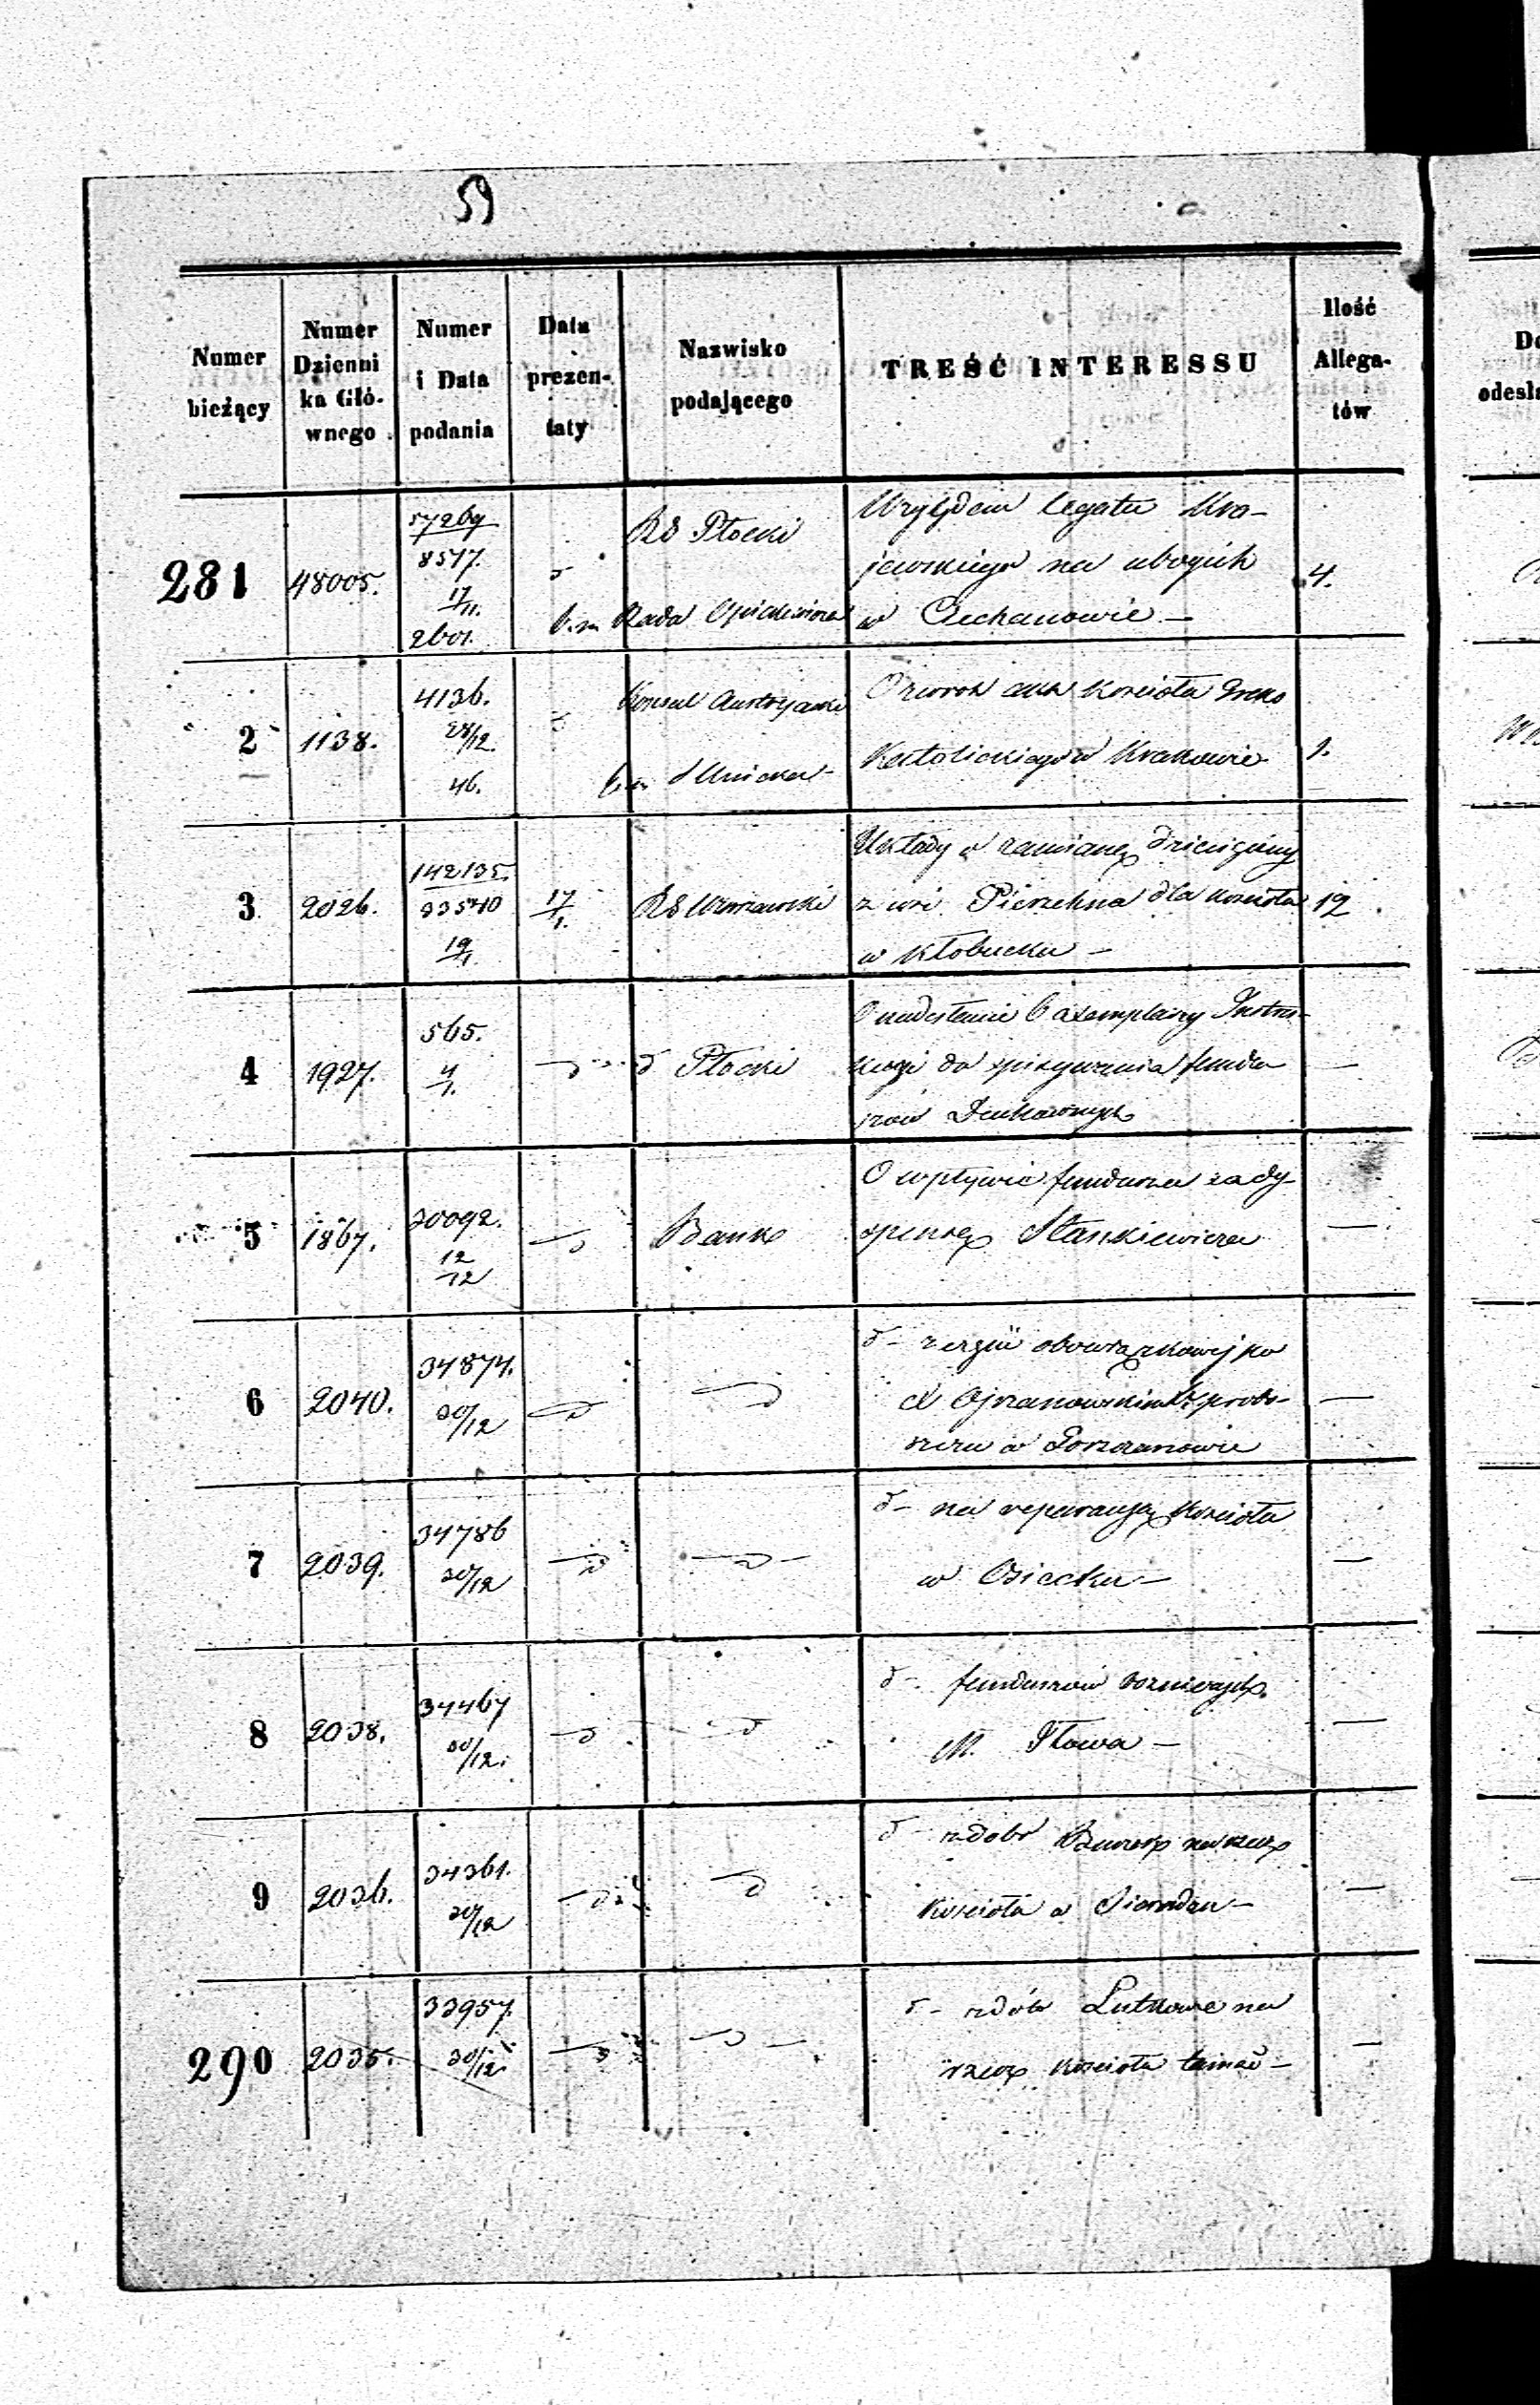 59
Numer bieżący
Numer Dzienni ka Głó- wnego
Numer i Data podania
Data prezen- taty
Nazwisko podającego
TREŚĆ INTERESSU
Ilość Allega- tów
281
48005.
57269
8517.
17/11.
2601.
RG Płocki
Rada Opiekuńcza
Względem legatu Kra-
jewskiego na ubogich
w Ciechanowie —
4.
2
1138.
4136.
28/12.
46.
Konsul Austryacki
O zwrot akt Kościoła Greko
Katolickiego w Krakowie
1.
3
2026.
142135.
93540
19/1.
17/1.
RG Warszawski
Układy o zamianę dziesięciny
z wsi Pierzchna dla Kościoła
w Kłobucku —
12
4
1927.
565.
4/1.
d
d Płocki
O nadesłanie 6 exemplarzy Instru-
kcyi do spisywania fundu
szów Duchownych
—
5
1867.
30092.
12/12
d
Bank
O wpływie funduszu za dy-
spensę Stankiewicza
—
6
2040.
34874.
30/12
d
d
d -
obowiązkowej po
probo-
szczu w
—
7
2039.
34786
30/12
d
d
d - na reparacyą Kościoła
w Osiecku —
—
8
2038.
34467
30/12.
d
d
d - funduszów
M. Iłowa —
—
9
2036.
34361.
30/12
d
d
d - z dóbr na rzecz
Kościoła w Sieradzu —
—
290
2035.
33957.
30/12.
d
d
d - z dóbr Lutkowa na
rzecz Kościoła tamże —
—